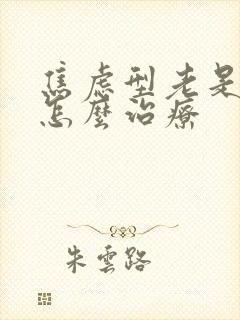 焦慮型老是
怎麼治療
朱雲路